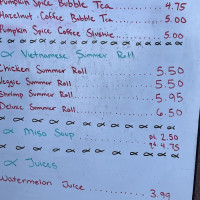 Pumpkin Spice Bubble Tea ... 4.75
Hazelnut Coffee Bubble Tea ... 5.00
Pumpkin Spice Coffee Slushie ... 5.00
Vietnamese Summer Roll
Chicken Summer Roll ... 5.50
Veggie Summer Roll ... 5.50
Shrimp Summer Roll ... 5.95
Deluxe Summer Roll ... 6.50
Miso Soup ... pt. 2.50
qt. 4.75
Juices
Watermelon Juice ... 3.99